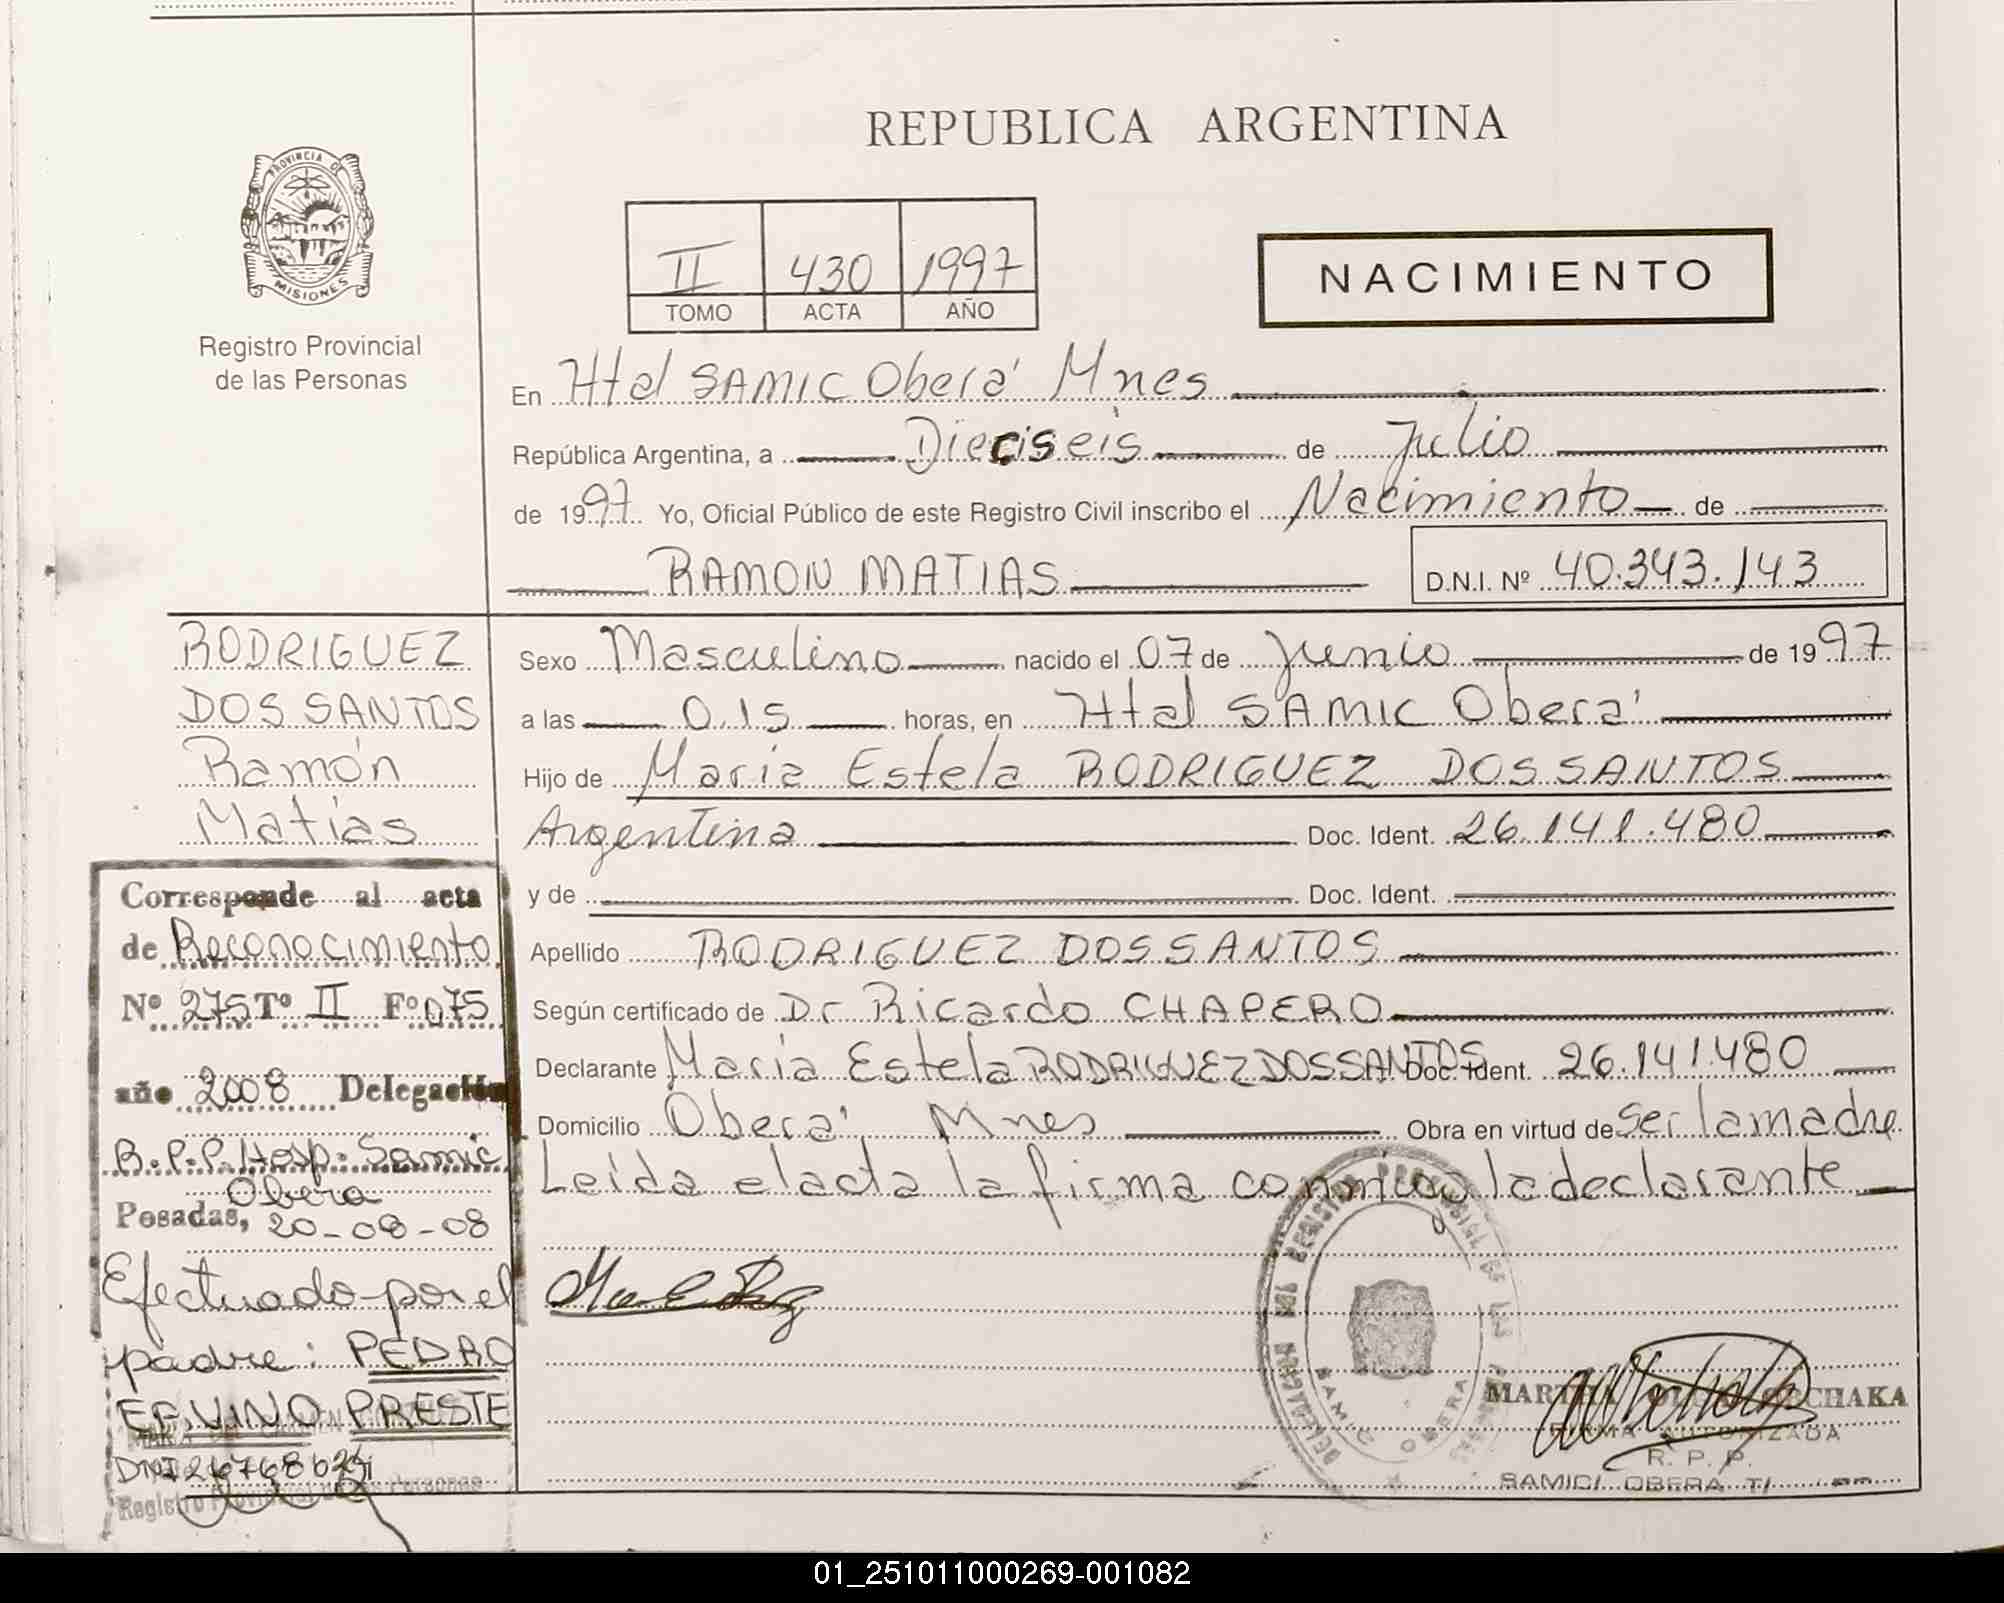 REPUBLICA ARGENTINA
PROVINCIA DE
MISIONES
Registro Provincial
de las Personas
II 430 1997
TOMO ACTA AÑO
NACIMIENTO
En Htal SAMIC Oberá Mnes
República Argentina, a Dieciseis de Julio
de 1997 Yo, Oficial Público de este Registro Civil inscribo el Nacimiento de
RAMON MATIAS D.N.I. Nº 40.343.143
RODRIGUEZ
DOS SANTOS
Ramón
Matías
Sexo Masculino nacido el 07 de Junio de 1997
a las 0.15 horas, en Htal SAMIC Oberá
Hijo de Maria Estela RODRIGUEZ DOS SANTOS
Argentina Doc. Ident. 26.141.480
y de Doc. Ident.
Apellido RODRIGUEZ DOS SANTOS
Según certificado de Dr Ricardo CHAPERO
Declarante María Estela RODRIGUEZ DOS SANTOS Doc. Ident. 26.141.480
Domicilio Oberá Mnes Obra en virtud de ser la madre
Leída el acta la firma conmigo la declarante
Corresponde al acta
de Reconocimiento
Nº 275 Tº II Fº 075
año 2008 Delegación
R.P.P. Hosp. Samic
Obera
Posadas, 20-08-08
Efectuado por el
padre: PEDRO
PRESTE
DNI
Registro Provincial de las Personas
MARTHA CHAKA
FIRMA AUTORIZADA
R. P. P.
SAMIC/ OBERA
01_251011000269-001082